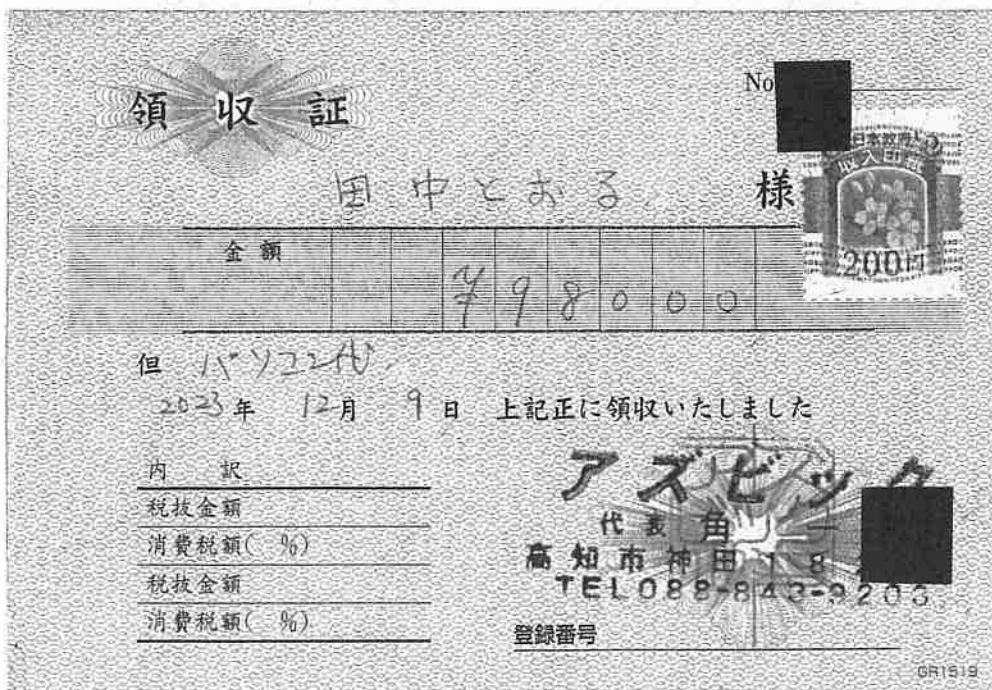 領収証
No
日本政府
収入印紙
200円
田中とおる 様
金額
¥98000
但 パソコン代.
2023年 12月 9日 上記正に領収いたしました
内 訳
税抜金額
消費税額( %)
税抜金額
消費税額( %)
アズビック
代表 角
高知市神田18
TEL088-843-9203
登録番号
GR1519